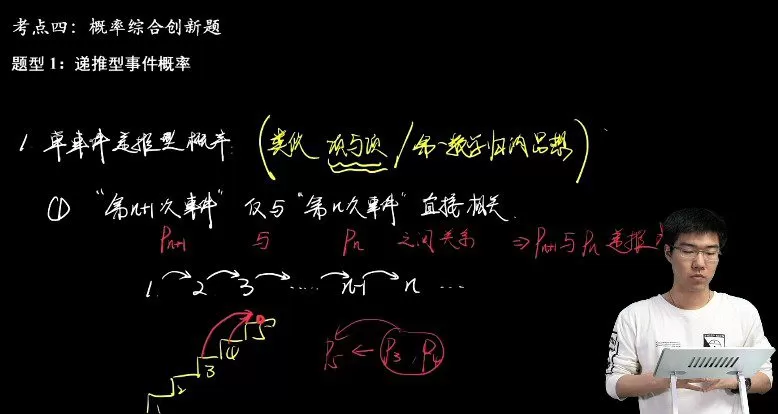 考点四：概率综合创新题
题型1：递推型事件概率
1. 单事件递推型概率 (类似 项与项 / 第一数学归纳思想)
① “第n+1次事件” 仅与 “第n次事件” 直接相关.
Pn+1 与 Pn 之间关系 ⇒ Pn+1与Pn递推
1 2 3 …… n-1 n …
5
4
3
2
1
P5 ← P3, P4